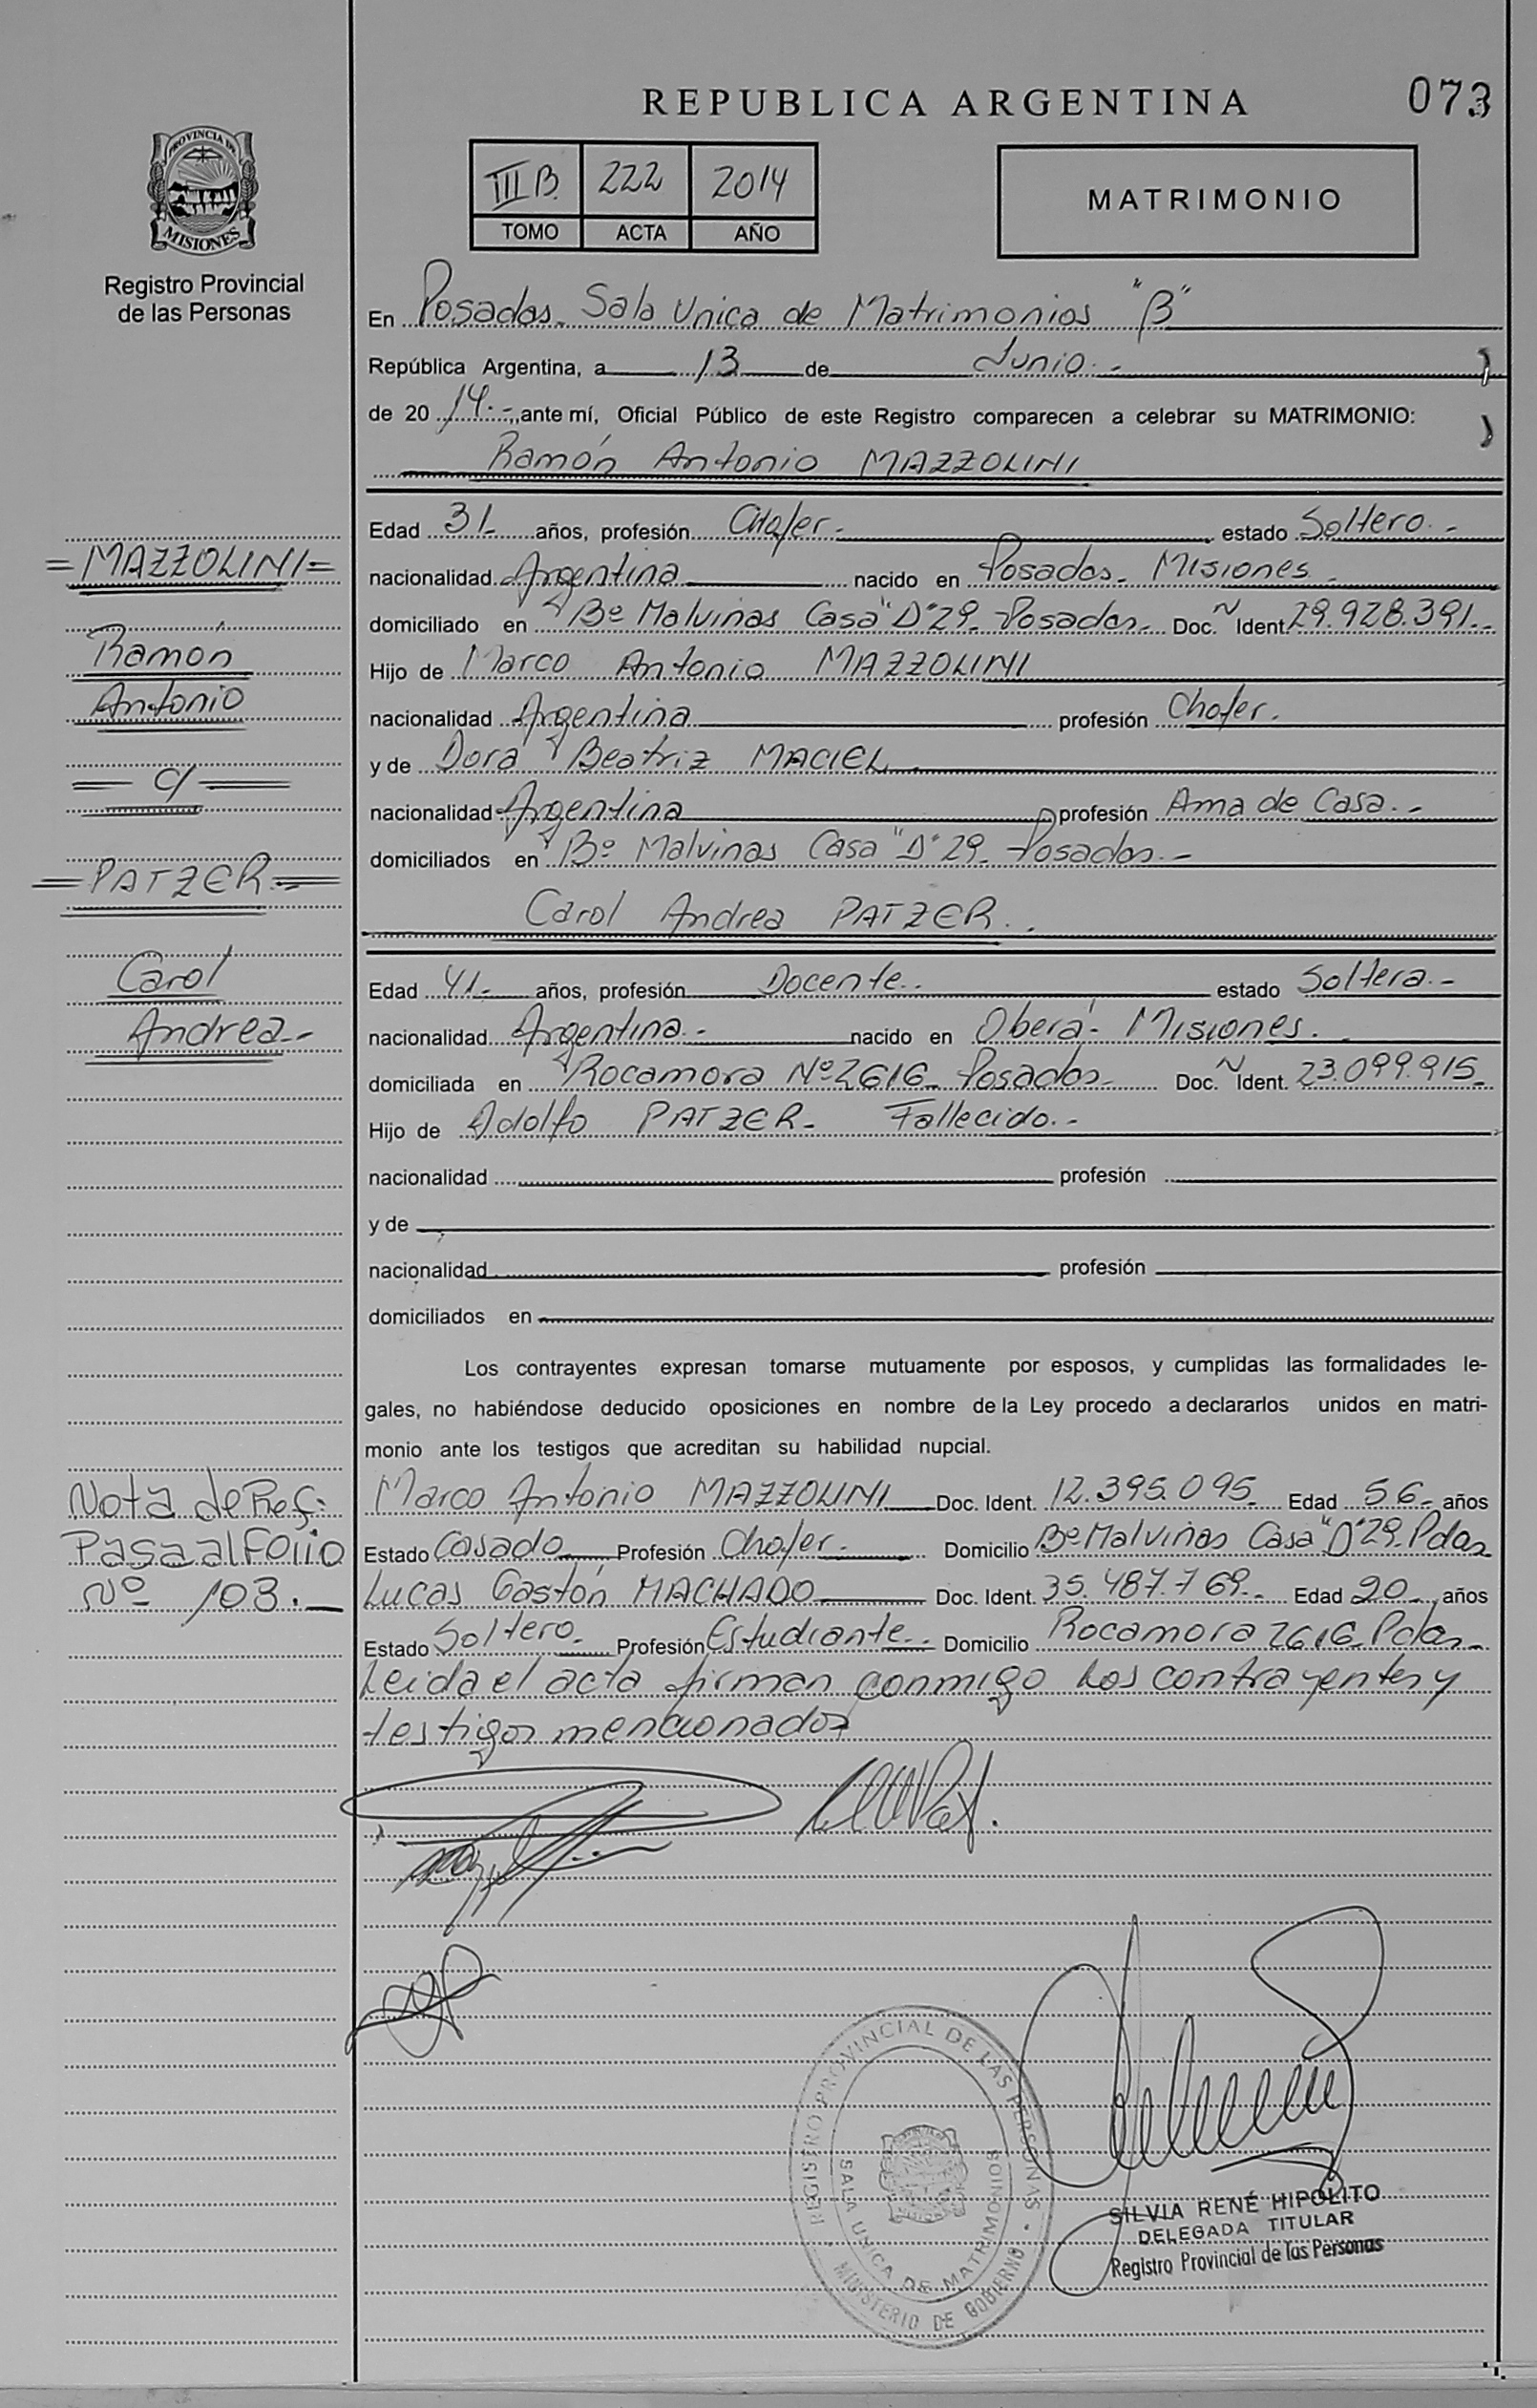 REPUBLICA ARGENTINA
073
PROVINCIA DE
MISIONES
Registro Provincial
de las Personas
III B. 222 2014
TOMO ACTA AÑO
MATRIMONIO
En Posadas. Sala Unica de Matrimonios "B"
República Argentina, a 13 de Junio.-
de 20 14.- ante mí, Oficial Público de este Registro comparecen a celebrar su MATRIMONIO:
Ramón Antonio MAZZOLINI
Edad 31- años, profesión Chofer.- estado Soltero.-
nacionalidad Argentina nacido en Posadas- Misiones-
domiciliado en Bº Malvinas Casa "D" 29- Posadas- Doc. N Ident. 29.928.391.-
Hijo de Marco Antonio MAZZOLINI
nacionalidad Argentina profesión Chofer.
y de Dora Beatriz MACIEL
nacionalidad Argentina profesión Ama de Casa.-
domiciliados en Bº Malvinas Casa "D" 29- Posadas.-
Carol Andrea PATZER.
Edad 41- años, profesión Docente. estado Soltera.-
nacionalidad Argentina.- nacido en Oberá- Misiones.
domiciliada en Rocamora Nº 2616- Posadas- Doc. N Ident. 23.099.915-
Hijo de Adolfo PATZER- Fallecido.-
nacionalidad profesión
y de
nacionalidad profesión
domiciliados en
Los contrayentes expresan tomarse mutuamente por esposos, y cumplidas las formalidades le-
gales, no habiéndose deducido oposiciones en nombre de la Ley procedo a declararlos unidos en matri-
monio ante los testigos que acreditan su habilidad nupcial.
Marco Antonio MAZZOLINI Doc. Ident. 12.395.095- Edad 56- años
Estado Casado Profesión Chofer.- Domicilio Bº Malvinas Casa "D" 29- Pdas
Lucas Gastón MACHADO Doc. Ident. 35.487.769.- Edad 20- años
Estado Soltero. Profesión Estudiante.- Domicilio Rocamora 2616- Pdas-
Leida el acta firman conmigo los contrayentes y
testigos mencionados
=MAZZOLINI=
Ramón
Antonio
= c/ =
=PATZER=
Carol
Andrea-
Nota de Ref:
Pasa al Folio
Nº 103.-
REGISTRO PROVINCIAL DE LAS PERSONAS
SALA UNICA DE MATRIMONIOS
MINISTERIO DE GOBIERNO
SILVIA RENÉ HIPOLITO
DELEGADA TITULAR
Registro Provincial de las Personas